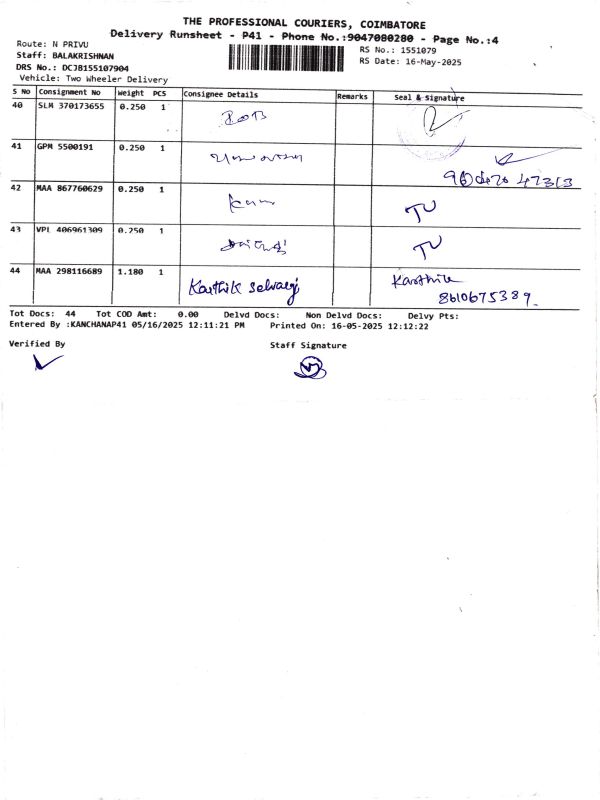 THE PROFESSIONAL COURIERS, COIMBATORE
Delivery Runsheet - P41 - Phone No.:9047080280 - Page No.:4
Route: N PRIVU
RS No.: 1551079
Staff: BALAKRISHNAN
RS Date: 16-May-2025
DRS No.: DCJB155107904
Vehicle: Two Wheeler Delivery
S No Consignment No Weight PCS Consignee Details Remarks Seal & Signature
40 SLM 370173655 0.250 1
41 GPM 5500191 0.250 1
42 MAA 867760629 0.250 1
43 VPL 406961309 0.250 1
44 MAA 298116689 1.180 1 Karthik Selvaraj Karthik
8610675389
Tot Docs: 44 Tot COD Amt: 0.00 Delvd Docs: Non Delvd Docs: Delvy Pts:
Entered By :KANCHANAP41 05/16/2025 12:11:21 PM Printed On: 16-05-2025 12:12:22
Verified By Staff Signature